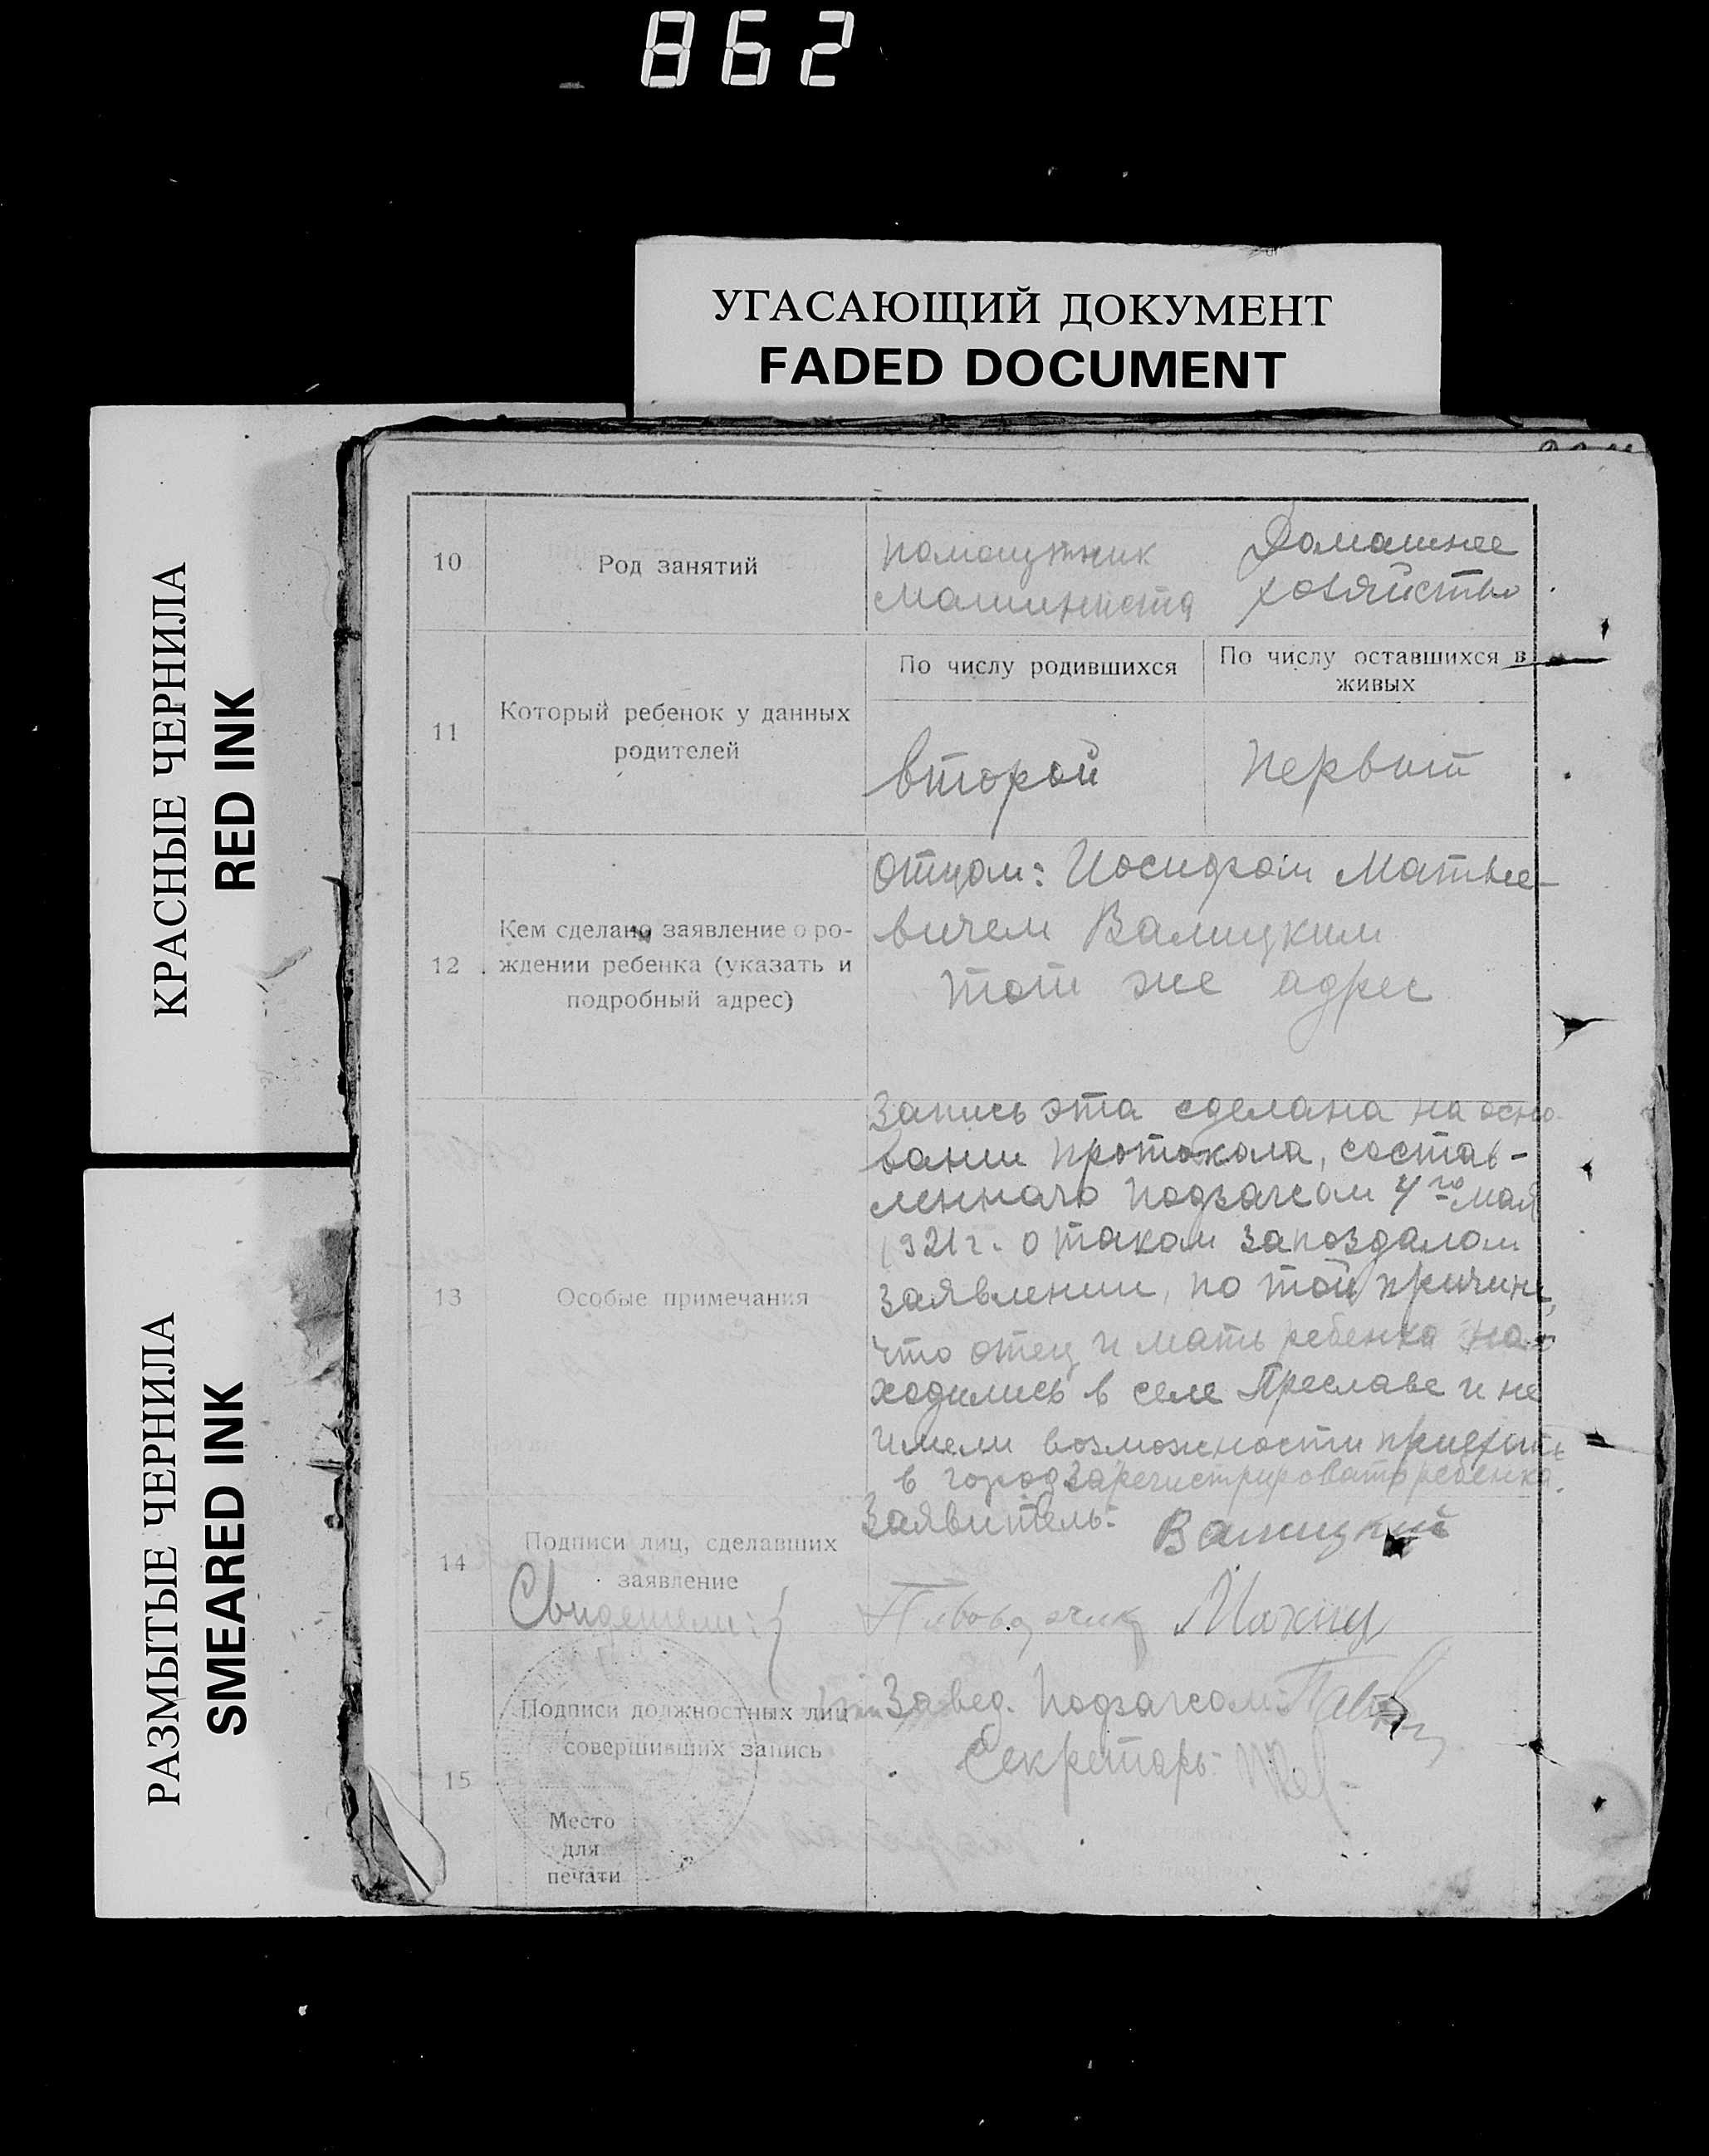 862
УГАСАЮЩИЙ ДОКУМЕНТ
FADED DOCUMENT
КРАСНЫЕ ЧЕРНИЛА
RED INK
РАЗМЫТЫЕ ЧЕРНИЛА
SMEARED INK
10
Род занятий
помощтник
машиниста
Домашнее
хозяйство
11
Который ребенок у данных
родителей
По числу родившихся
По числу оставшихся в
живых
второй
первый
12
Кем сделано заявление о ро-
ждении ребенка (указать и
подробный адрес)
отцом: Иосифом Матвее-
вичем Валицким
тот же адрес
13
Особые примечания
Запись эта сделана на осно-
вании протокола, состав-
леннаго Подзагсом 4го мая
1921 г. о таком запоздалом
заявлении, по той причине,
что отец и мать ребенка на-
ходились в селе Преславе и не
имели возможности приехать
в город зарегистрировать ребенка.
14
Подписи лиц, сделавших
заявление
Свидетели:
Заявитель: Валицкий
15
Подписи должностных лиц
совершивших запись
Завед. Подзагсом
Секретарь:
Место
для
печати